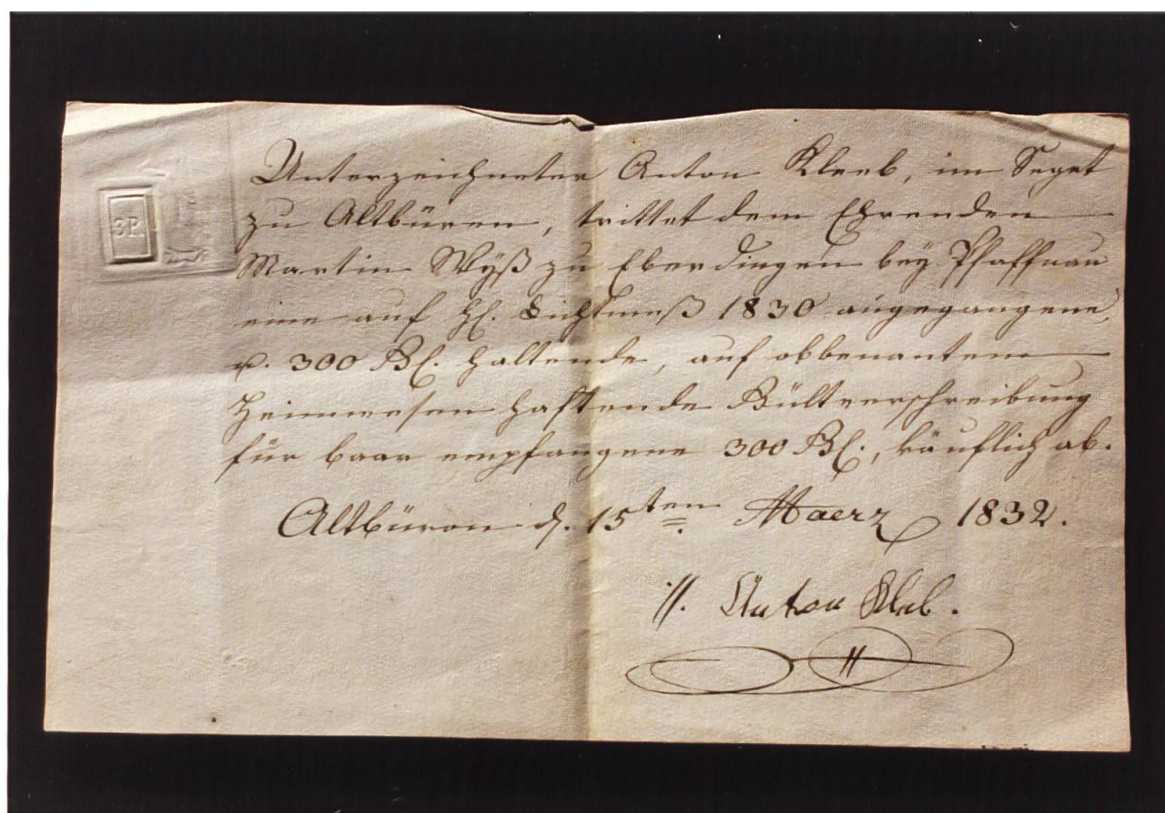 3R.
Unterzeichneter Anton Kleeb, im Seget
zu Altbüren, trittet dem Ehrenden
Martin Wyß zu Eberdingen bey Pfaffnau
eine auf Hl. Lichtmeß 1830 angegangene,
u. 300 Gl. haltende, auf obbenantem
Heimwesen haftende Gültverschreibung
für baar empfangene 300 Gl., käuflich ab.
Altbüron d. 15ten Maerz 1832.
Anton Kleb.